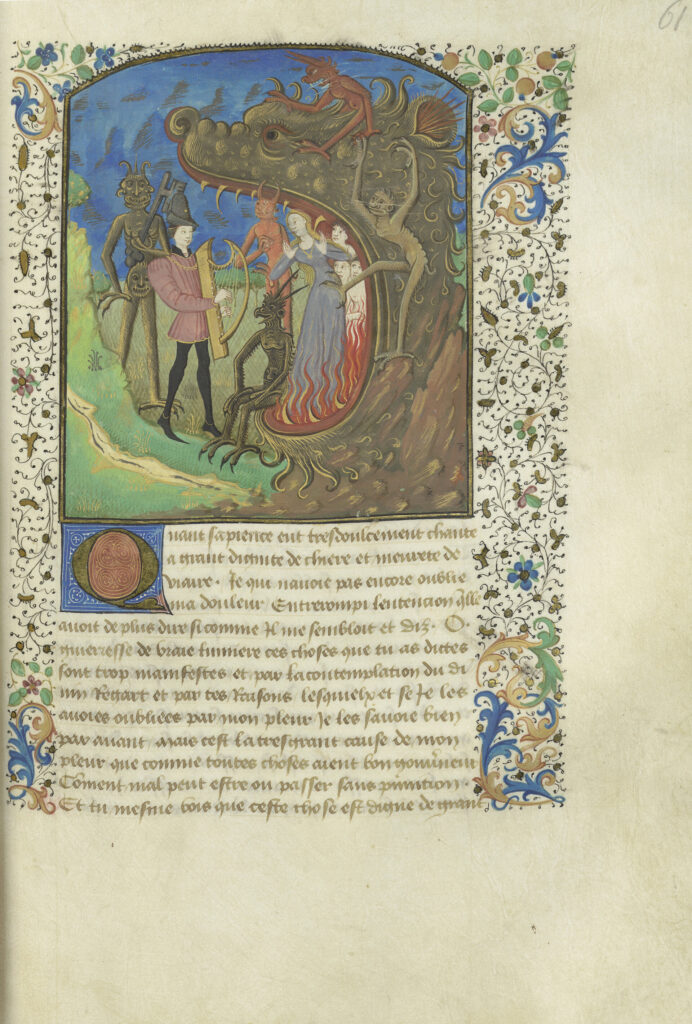 61
Quant sapience eut tresdoulcement chante
a grant dignite de chiere et meurete de
viaire . Je qui navoie pas encore oublie
ma douleur Entrerompi lentencion qlle
avoit de plus dire si comme Il me sembloit et diz . O .
guierresse de vraie lumiere ces choses que tu as dictes
sont trop manifestes et par la contemplation du di
uin Regart et par tes Raisons lesquielx et se Je les
avoies oubliees par mon pleur Je les savoie bien
par avant mais cest la tresgrant cause de mon
pleur que comme toutes choses aient bon
Coment mal peut estre ou passer sans punition
Et tu mesme vois que ceste chose est digne de grant